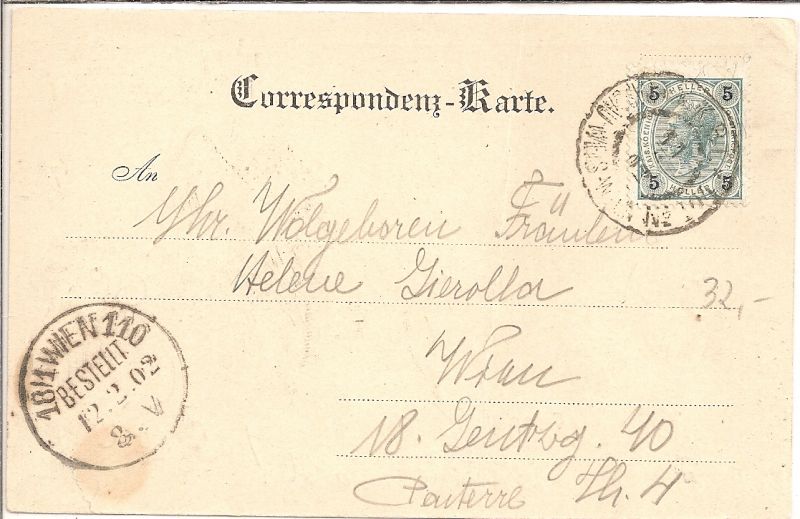 Correspondenz-Karte.
5 HELLER 5
5 HELLER 5
An
Ihr. Wolgeboren Fräulein
Helene Gierolla
32,-
Wien
18. Gentzg. 40
Parterre Th. 4
18/1 WIEN 110
BESTELLT
12.2.02
8. V